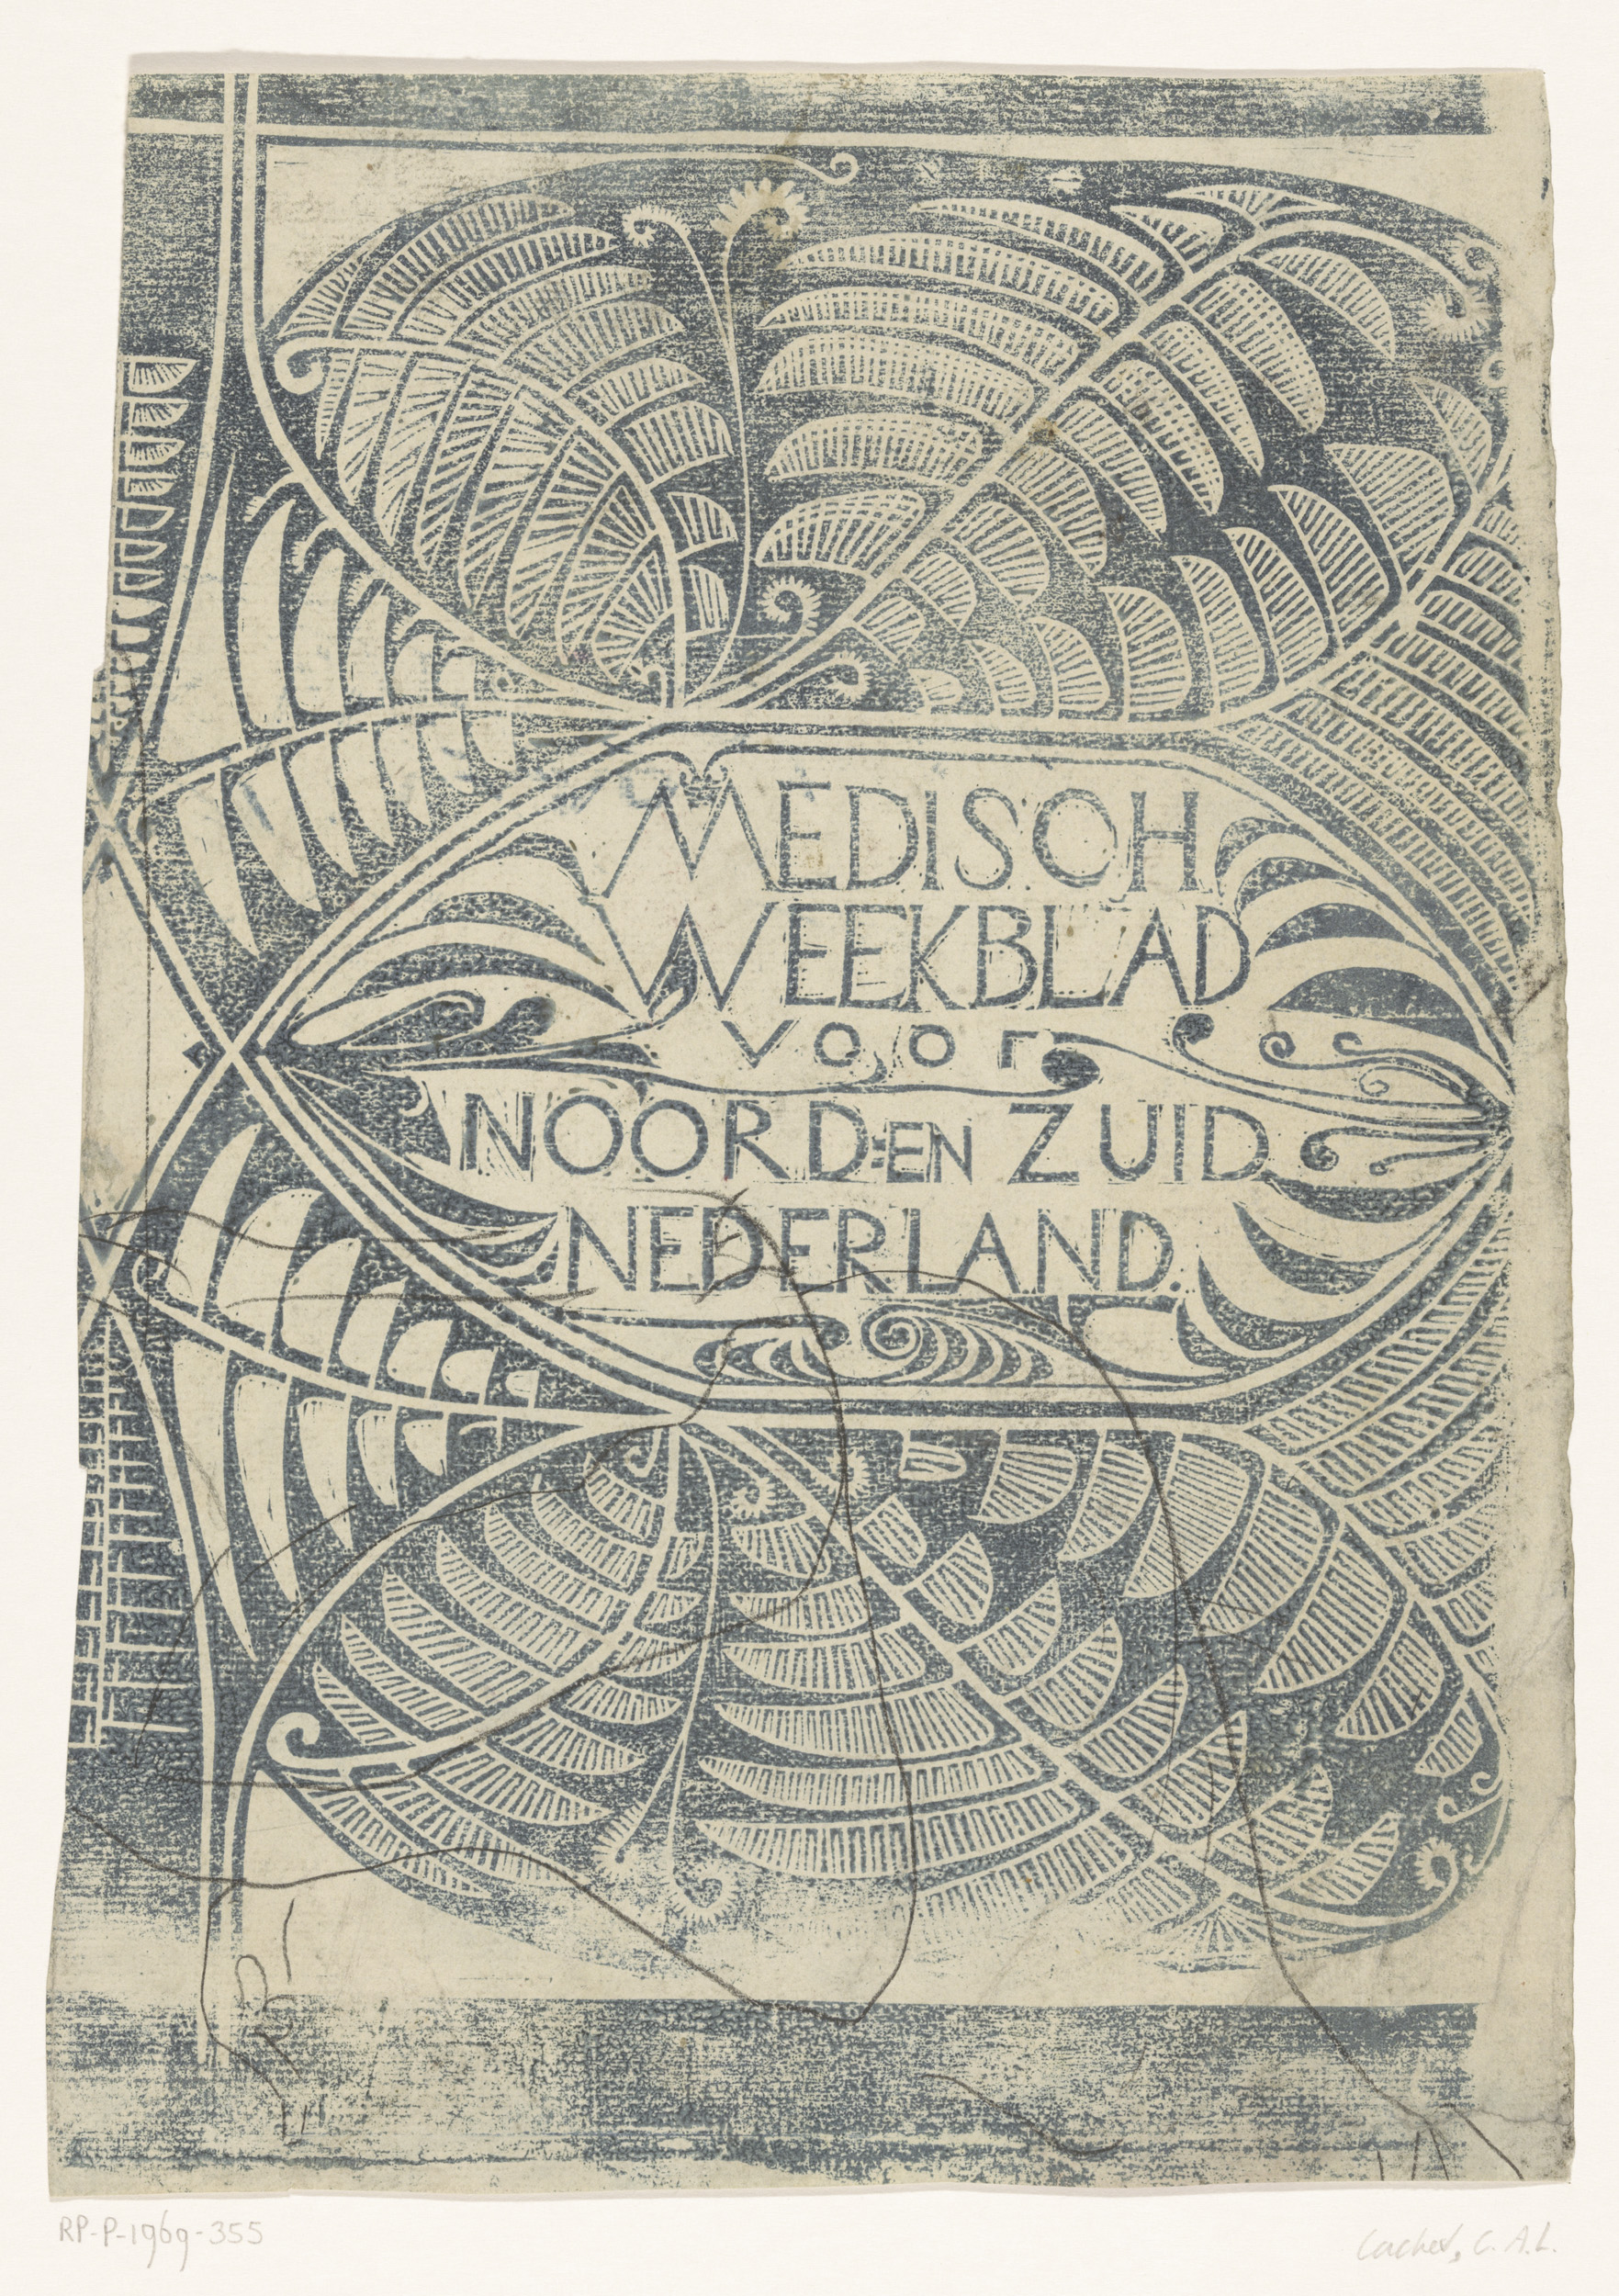 MEDISCH
WEEKBLAD
voor
NOORD=EN ZUID
NEDERLAND.
RP-P-1969-355
Cachet, C.A.L.